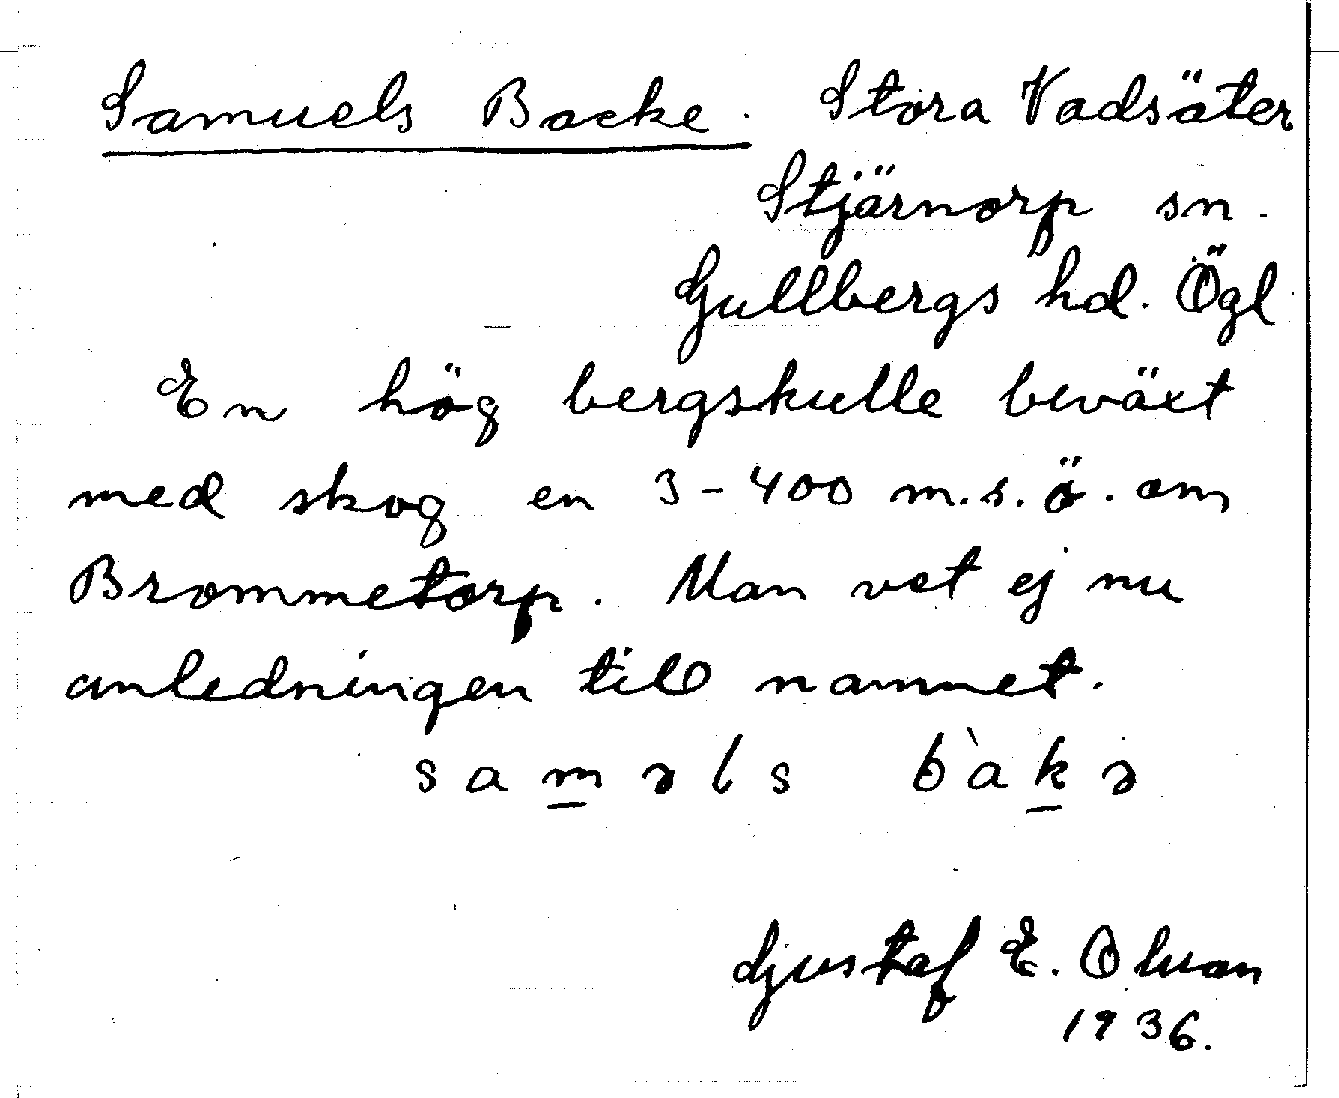 Samuels Backe. Stora Vadsäter
Stjärnorp sn.
Gullbergs hd. Ögl
En hög bergskulle beväxt
med skog en 3-400 m.s.ö. om
Brommetorp. Man vet ej nu
anledningen till namnet.
saməls bàkə
Gustaf E. Olson
1936.